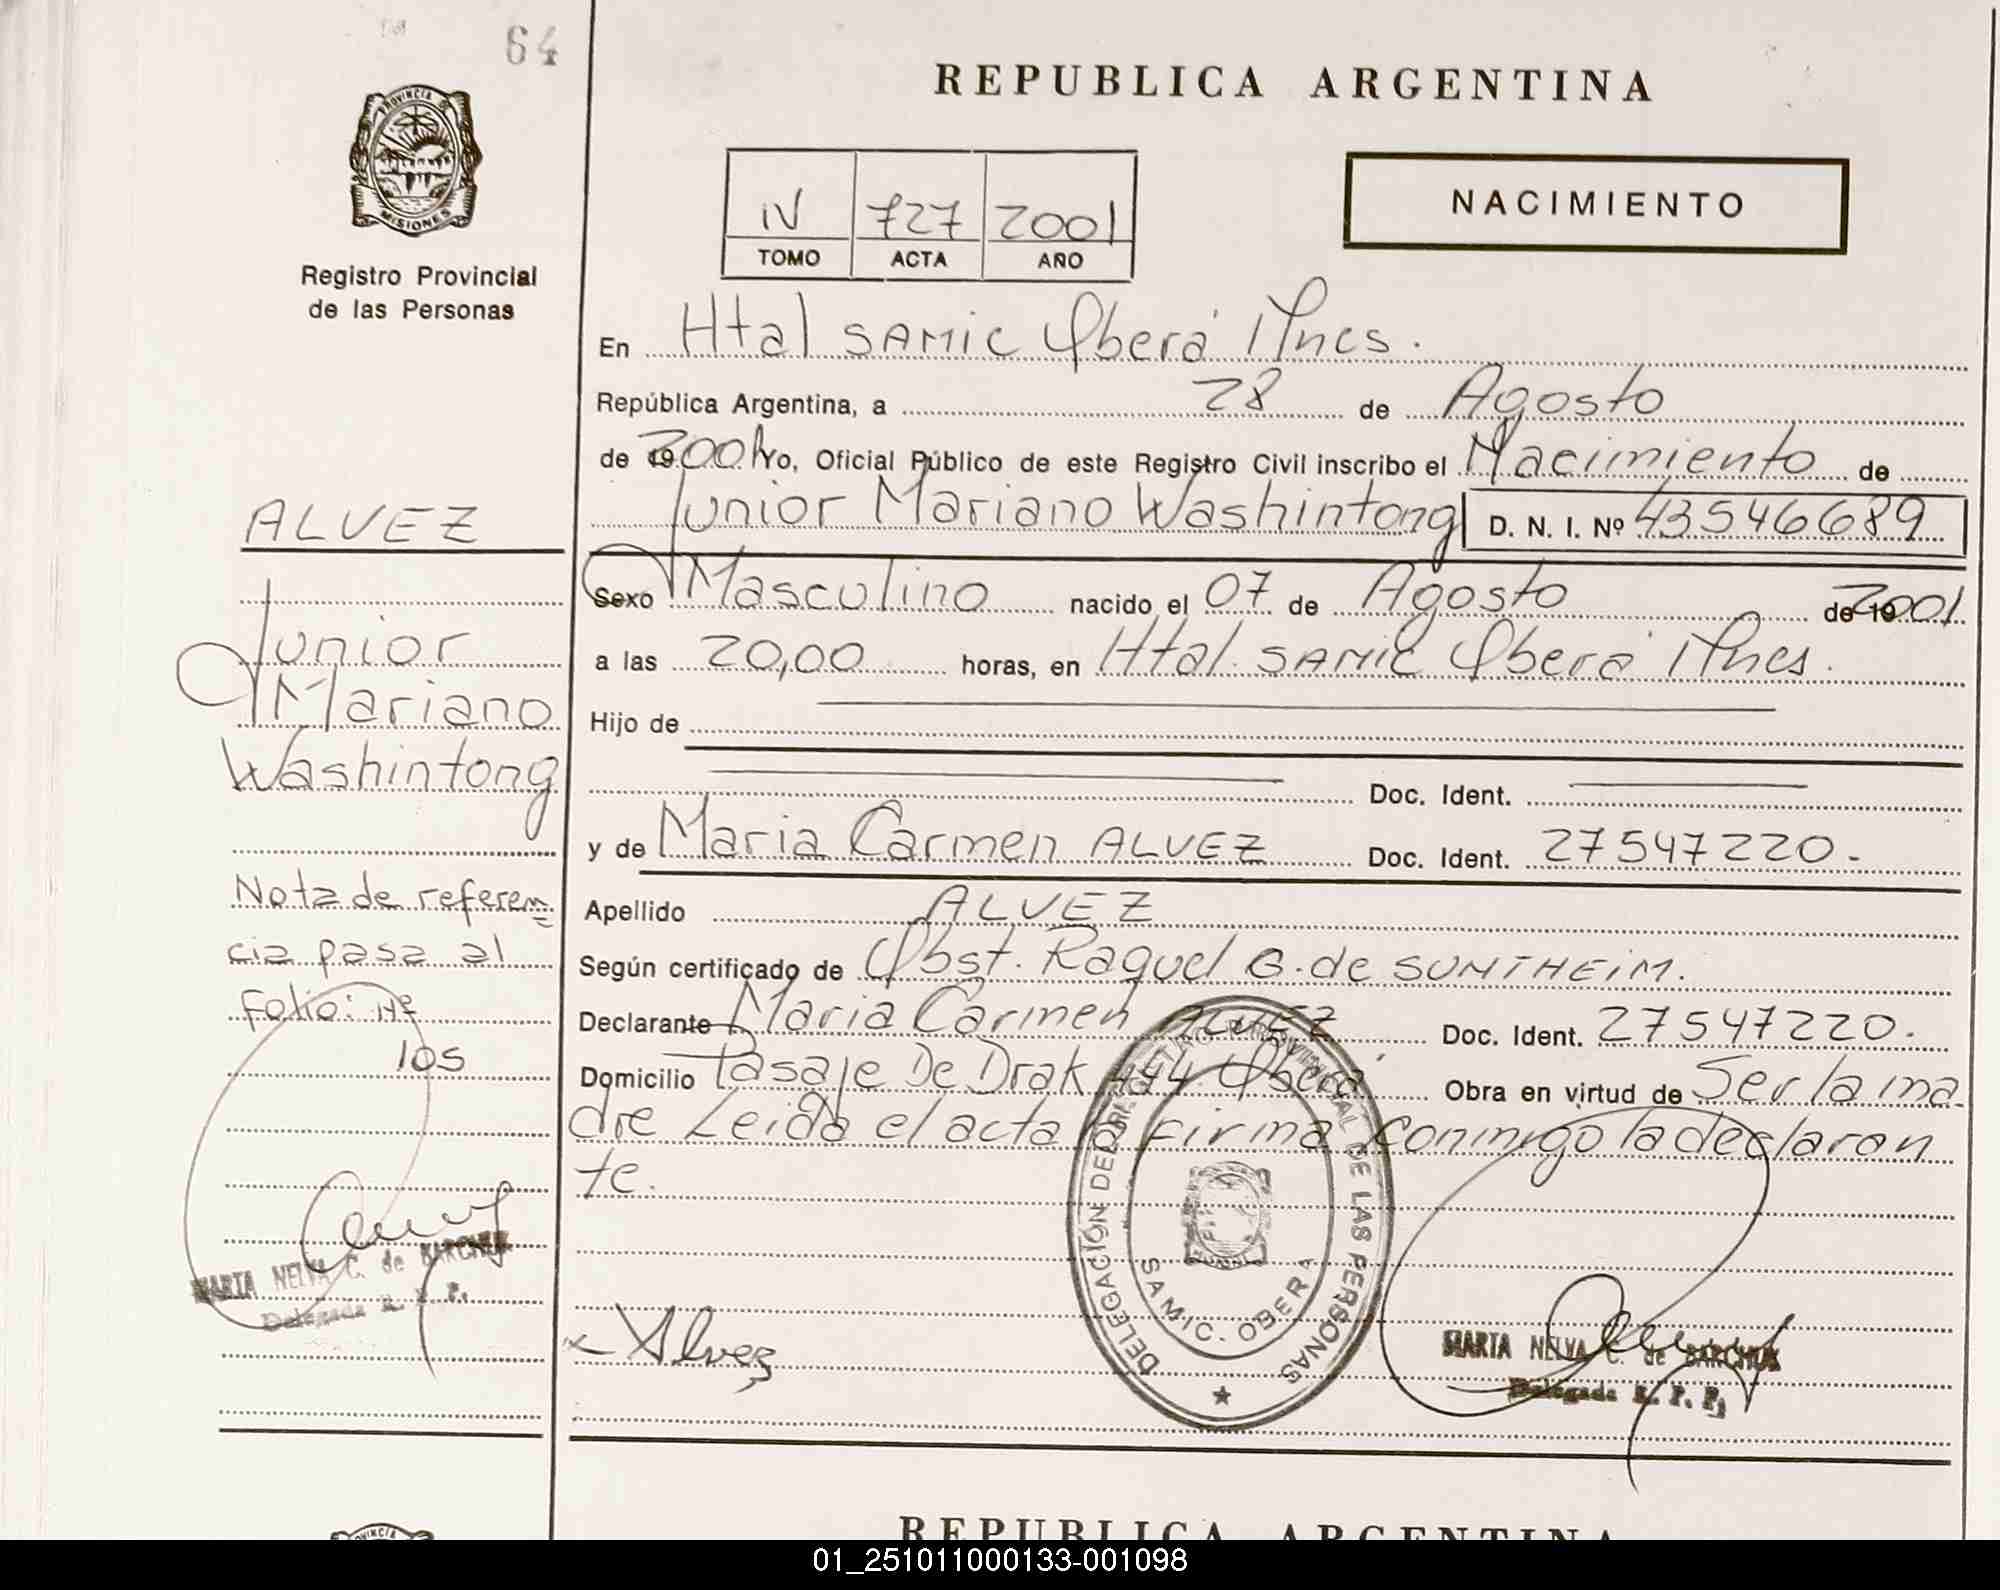 64
PROVINCIA DE
MISIONES
Registro Provincial
de las Personas
REPUBLICA ARGENTINA
IV 727 2001
TOMO ACTA AÑO
NACIMIENTO
En Htal SAMIC Oberá Mnes.
República Argentina, a 28 de Agosto
de 2001 Yo, Oficial Público de este Registro Civil inscribo el Nacimiento de
Junior Mariano Washintong D. N. I. Nº 43546689
Sexo Masculino nacido el 07 de Agosto de 19 2001
a las 20,00 horas, en Htal. SAMIC Oberá Mnes.
Hijo de
Doc. Ident.
y de Maria Carmen ALVEZ Doc. Ident. 27547220.
Apellido ALVEZ
Según certificado de Obst. Raquel G. de SUNTHEIM.
Declarante Maria Carmen ALVEZ Doc. Ident. 27547220.
Domicilio Pasaje De Drak 444 Oberá Obra en virtud de Ser la ma
dre Leida el acta la firma conmigo la declaran
te.
ALVEZ
Junior
Mariano
Washintong
Nota de referen
cia pasa al
folio: Nº
105
MARTA NELVA C. de BARCHUK
Delegada R. P. P.
Alvez
DELEGACIÓN DEL REGISTRO PROVINCIAL DE LAS PERSONAS
SAMIC. OBERA
MARTA NELVA C. de BARCHUK
Delegada R. P. P.
REPUBLICA ARGENTINA
01_251011000133-001098